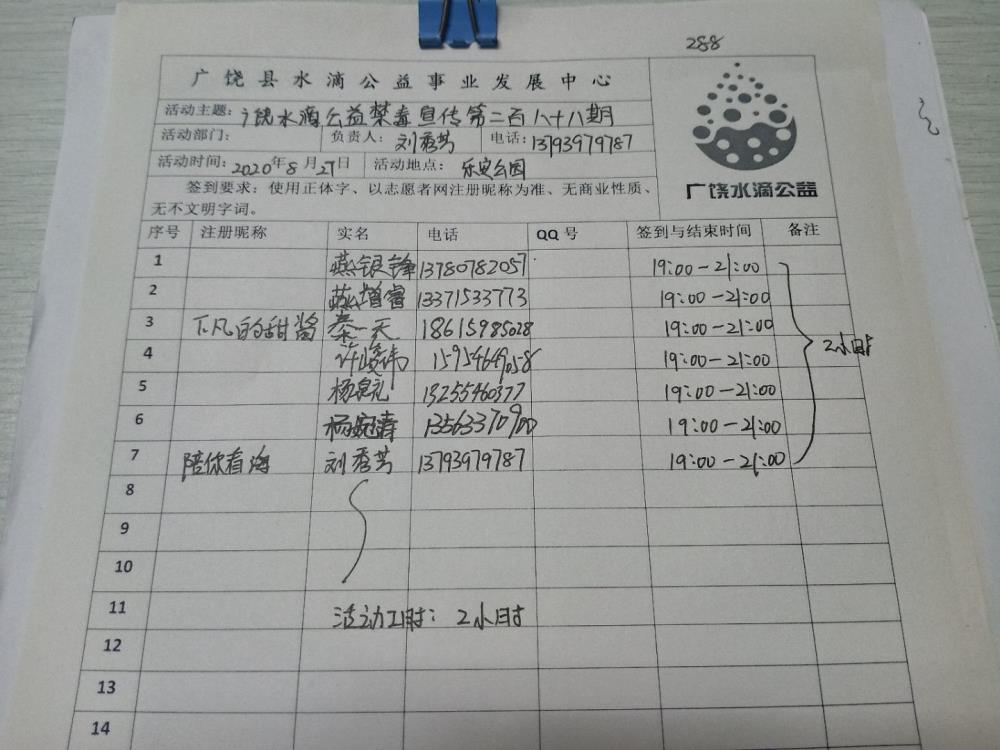 288
广饶县水滴公益事业发展中心
活动主题：广饶水滴公益禁毒宣传第二百八十八期
活动部门： 负责人：刘秀芳 电话：13793979787
活动时间：2020年8月27日 活动地点：乐安公园
签到要求：使用正体字、以志愿者网注册昵称为准、无商业性质、
无不文明字词。
广饶水滴公益
序号 注册昵称 实名 电话 QQ号 签到与结束时间 备注
1 燕银锋 13780782057 19:00-21:00
2 苏增睿 13371533773 19:00-21:00
3 下凡的甜酱 秦一天 18615985028 19:00-21:00
4 许峻伟 15954649058 19:00-21:00 2小时
5 杨泉礼 13255460377 19:00-21:00
6 杨婉清 13563370900 19:00-21:00
7 陪你看海 刘秀芳 13793979787 19:00-21:00
8
9
10
11 活动工时：2小时
12
13
14